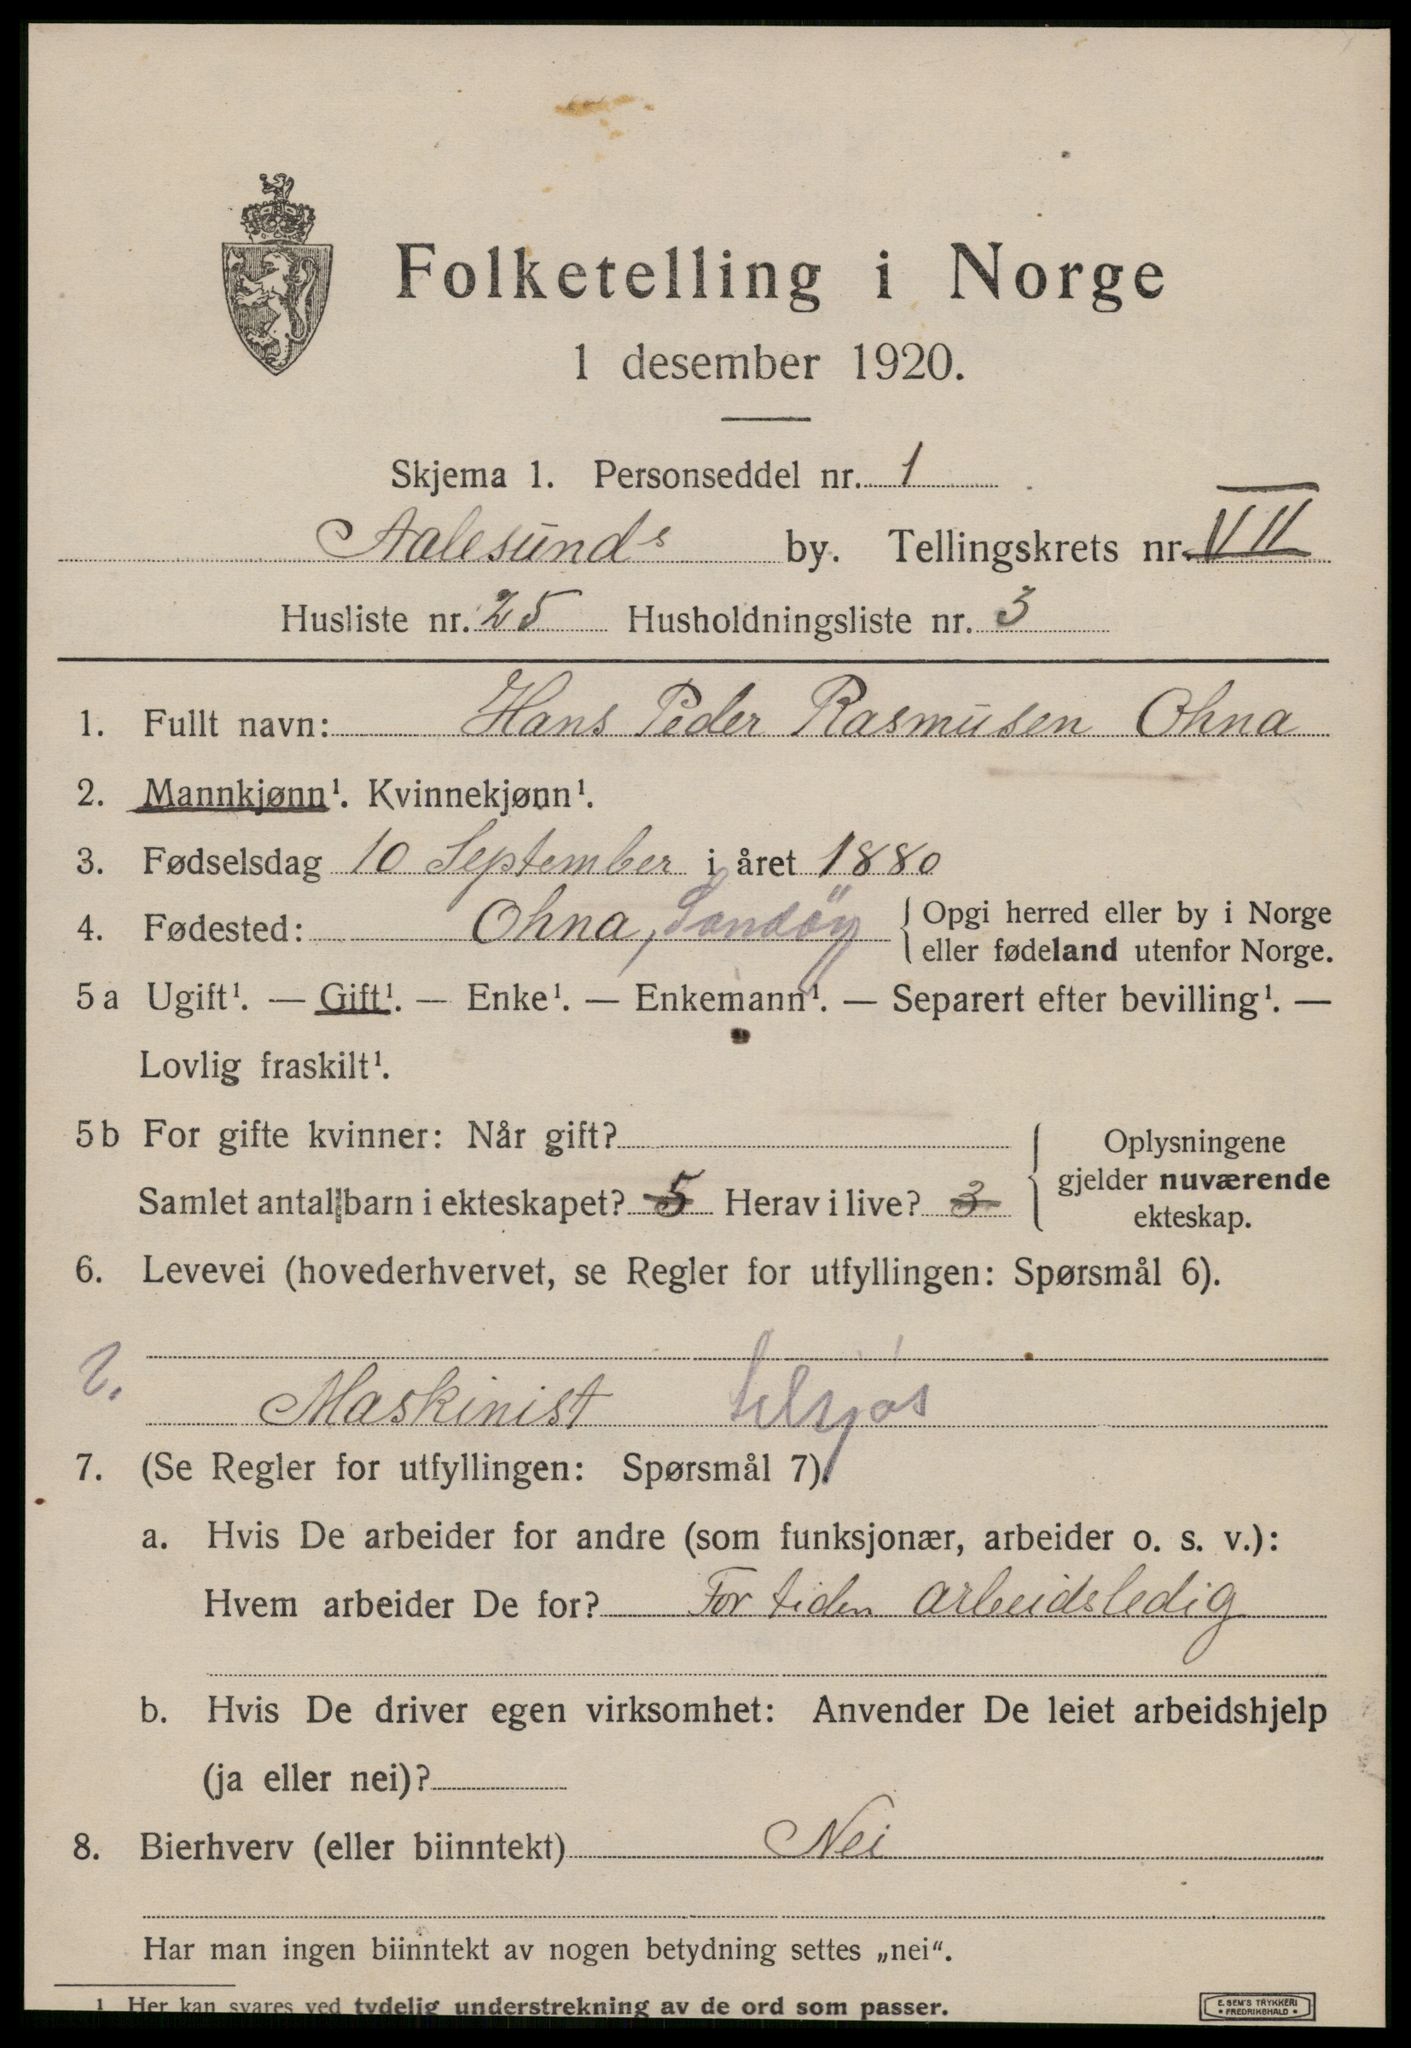 Folketelling i Norge
1 desember 1920.
Skjema 1. Personseddel nr. 1
Aalesunds by. Tellingskrets nr. VII
Husliste nr. 25 Husholdningsliste nr. 3
1. Fullt navn: Hans Peder Rasmusen Ohna
2. Mannkjønn¹. Kvinnekjønn¹.
3. Fødselsdag 10 September i året 1880
4. Fødested: Ohna, Sandøy { Opgi herred eller by i Norge
eller fødeland utenfor Norge.
5a Ugift¹. — Gift¹. — Enke¹. — Enkemann¹. — Separert efter bevilling¹. —
Lovlig fraskilt¹.
5b For gifte kvinner: Når gift?
Samlet antall barn i ekteskapet? 5 Herav i live? 3
{ Oplysningene
gjelder nuværende
ekteskap.
6. Levevei (hovederhvervet, se Regler for utfyllingen: Spørsmål 6).
Maskinist
7. (Se Regler for utfyllingen: Spørsmål 7).
a. Hvis De arbeider for andre (som funksjonær, arbeider o. s. v.):
Hvem arbeider De for? For tiden arbeidsledig
b. Hvis De driver egen virksomhet: Anvender De leiet arbeidshjelp
(ja eller nei)?
8. Bierhverv (eller biinntekt) Nei
Har man ingen biinntekt av nogen betydning settes „nei“.
1 Her kan svares ved tydelig understrekning av de ord som passer.
E. SEM'S TRYKKERI
• FREDRIKSHALD •